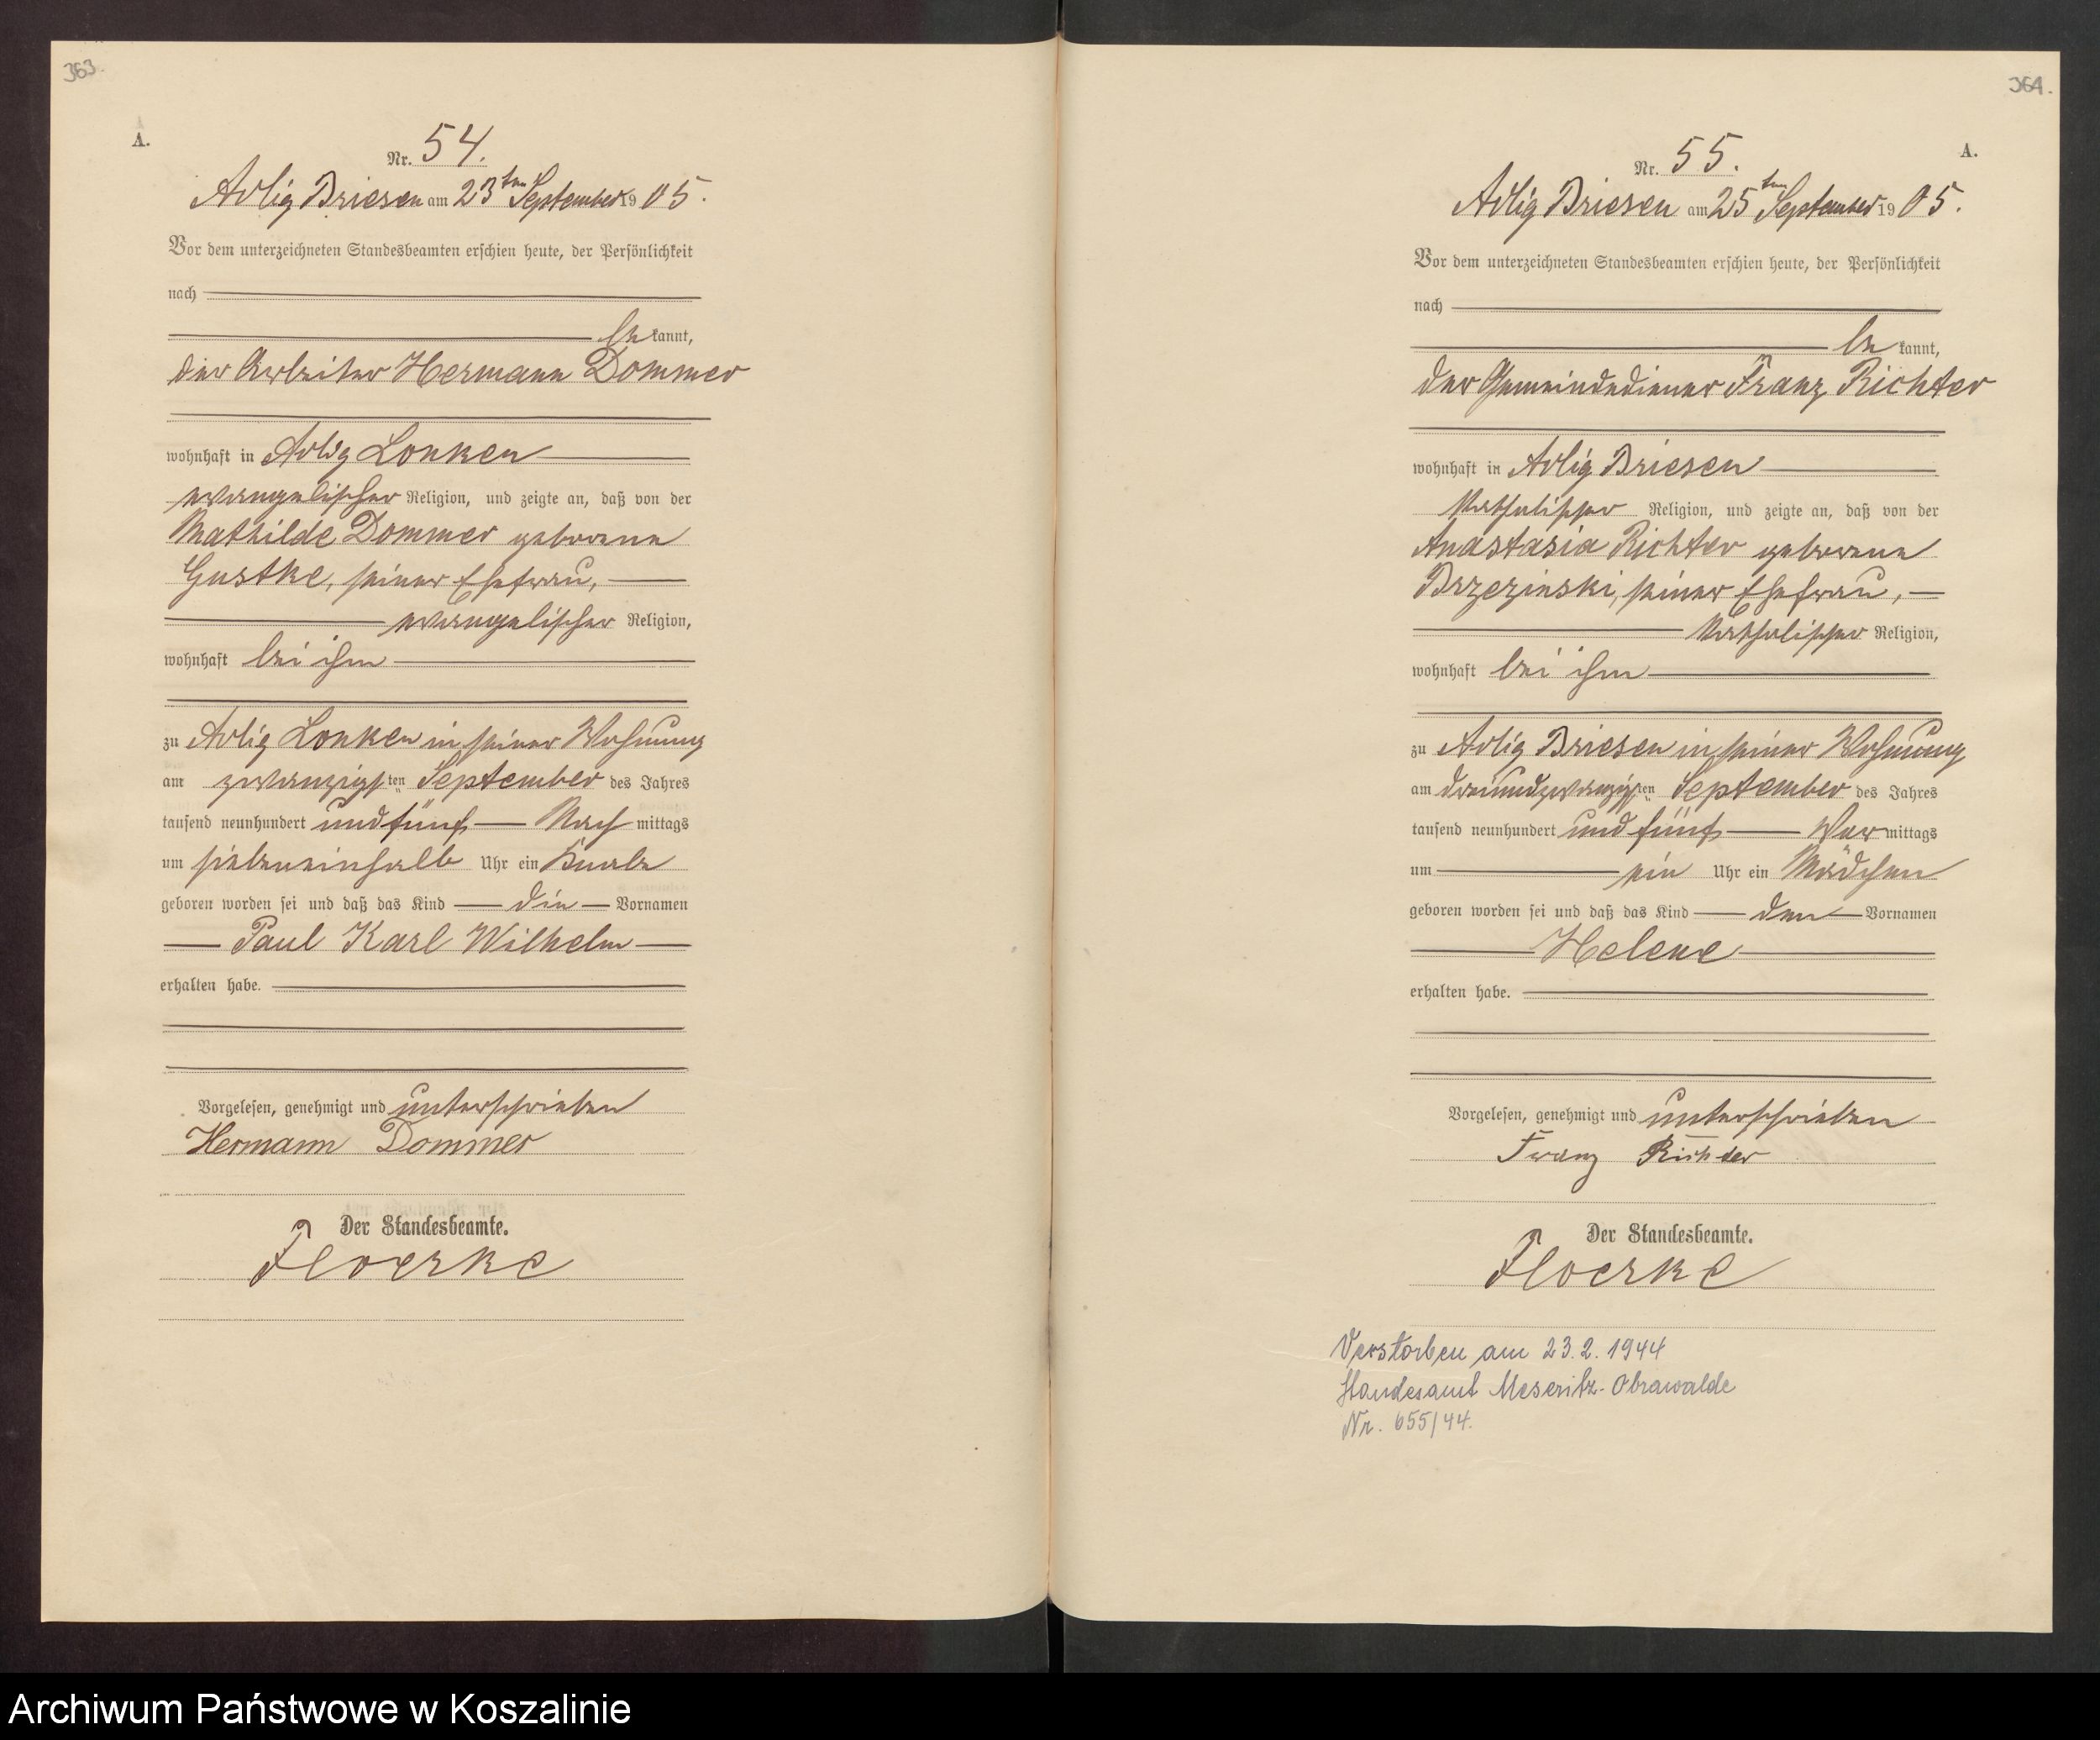 363.
A.
Nr. 54.
Adlig Briesen am 23ten September 1905.
Vor dem unterzeichneten Standesbeamten erschien heute, der Persönlichkeit
nach
bekannt,
der Arbeiter Hermann Dommer
wohnhaft in Adlig Lonken
evangelischer Religion, und zeigte an, daß von der
Mathilde Dommer geborene
Gustke, seiner Ehefrau,
evangelischer Religion,
wohnhaft bei ihm
zu Adlig Lonken in seiner Wohnung
am zwanzigsten September des Jahres
tausend neunhundert und fünf Nachmittags
um siebeneinhalb Uhr ein Knabe
geboren worden sei und daß das Kind die Vornamen
Paul Karl Wilhelm
erhalten habe.
Vorgelesen, genehmigt und unterschrieben
Hermann Dommer
Der Standesbeamte.
Floerke
364.
A.
Nr. 55.
Adlig Briesen am 25ten September 1905.
Vor dem unterzeichneten Standesbeamten erschien heute, der Persönlichkeit
nach
bekannt,
der Gemeindediener Franz Richter
wohnhaft in Adlig Briesen
katholischer Religion, und zeigte an, daß von der
Anastasia Richter geborene
Brzezinski, seiner Ehefrau,
katholischer Religion,
wohnhaft bei ihm
zu Adlig Briesen in seiner Wohnung
am dreiundzwanzigsten September des Jahres
tausend neunhundert und fünf Vormittags
um ein Uhr ein Mädchen
geboren worden sei und daß das Kind den Vornamen
Helene
erhalten habe.
Vorgelesen, genehmigt und unterschrieben
Franz Richter
Der Standesbeamte.
Floerke
Verstorben am 23.2.1944
Standesamt Meseritz-Obrawalde
Nr. 655/44.
Archiwum Państwowe w Koszalinie